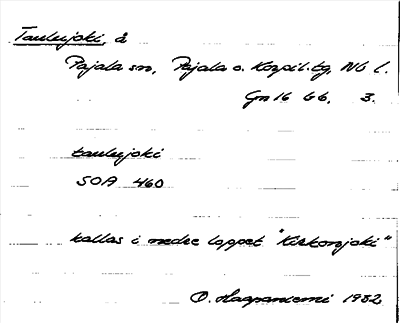 Taulujoki, å
Pajala sn, Pajala o. Korpil. tg, Nb l.
Gn 16 66, 3.
taulujoki
SOA 460
kallas i nedre loppet "Kirkonjoki"
O. Haapaniemi 1932